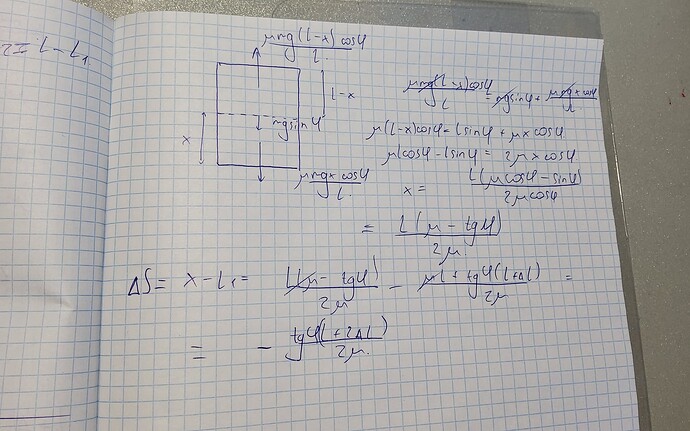 μmg(l-x)cosφ / l
l-x
x
mgsinφ
μmgx cosφ / l
μmg(l-x)cosφ / l = mgsinφ + μmgx cosφ / l
μ(l-x)cosφ = lsinφ + μx cosφ
μlcosφ - lsinφ = 2μx cosφ
x = L(μcosφ - sinφ) / 2μcosφ
= L(μ - tgφ) / 2μ
ΔS = x - L₁ = L(μ - tgφ) / 2μ - μl + tgφ(l+Δl) / 2μ =
= - tgφ(l+2Δl) / 2μ